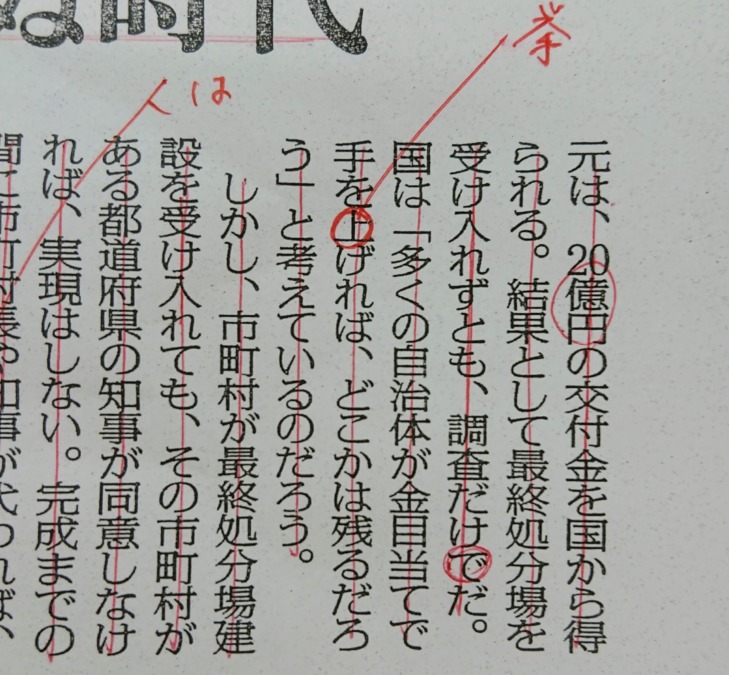 時代
挙
人は
元は、20億円の交付金を国から得
られる。結果として最終処分場を
受け入れずとも、調査だけでだ。
国は「多くの自治体が金目当てで
手を上げれば、どこかは残るだろ
う」と考えているのだろう。
しかし、市町村が最終処分場建
設を受け入れても、その市町村が
ある都道府県の知事が同意しなけ
れば、実現はしない。完成までの
間に市町村長や知事が代われば、